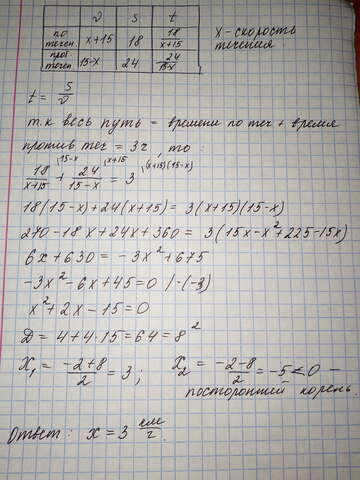 v s t
по течен. x+15 18 18/(x+15)
прот течен 15-x 24 24/(15-x)
X - скорость
течения.
t = s/v
т.к весь путь = времени по теч + время
против теч = 3ч, то:
18/(x+15) (15-x + 24/(15-x) (x+15 = 3 (x+15)(15-x)
18(15-x)+24(x+15) = 3(x+15)(15-x)
270-18x+24x+360 = 3(15x-x²+225-15x)
6x+630 = -3x²+675
-3x²-6x+45=0 /·(-3)
x²+2x-15=0
D = 4+4·15=64=8²
X₁ = (-2+8)/2 = 3; X₂ = (-2-8)/2 = -5 < 0 -
посторонний корень.
Ответ: x = 3 км/ч.